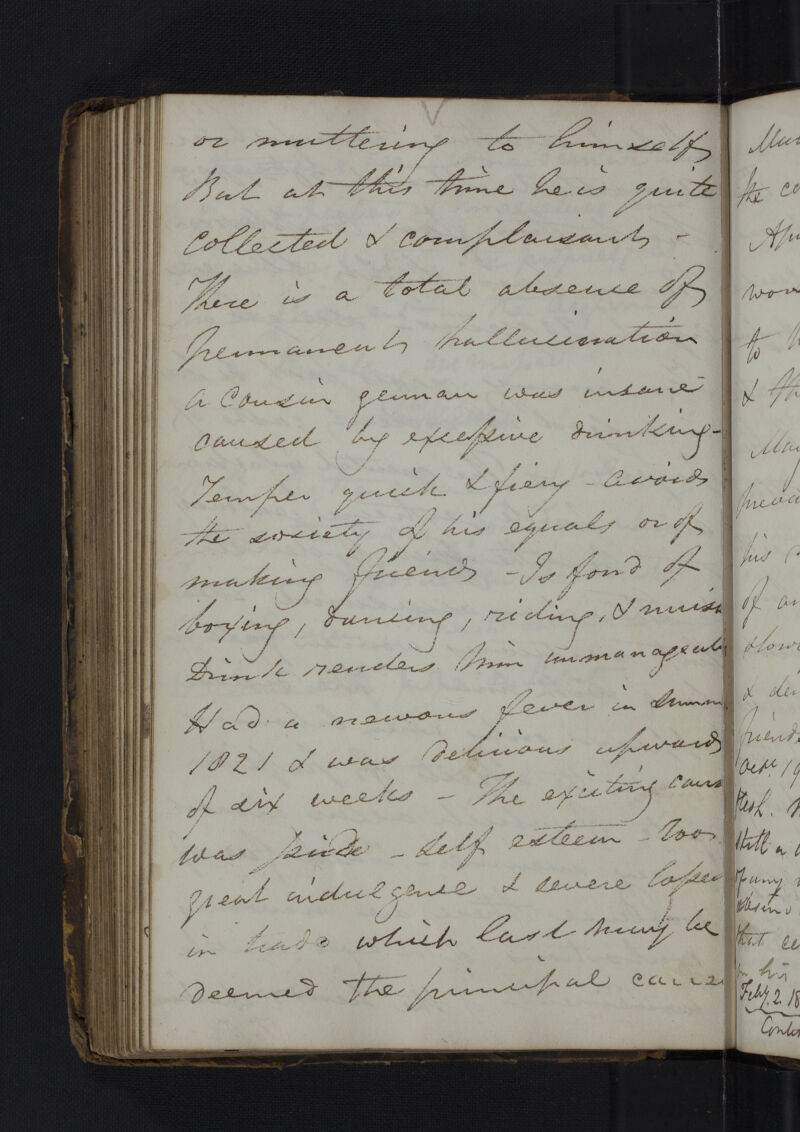 or muttering to himself
But at this time he is quite
collected & complaisant -
There is a total absence of
permanent hallucination
a cousin german was insane
caused by excessive drinking -
Temper quick & fiery - avoids
the society of his equals or of
making friends - Is fond of
boxing, dancing, riding, & music
Drink renders him unmanageable
Had a nervous fever in summer
1821 & was delirious upwards
of six weeks - The exciting cause
was pride - self esteem - Too
great indulgence & severe losses
in trade which last may be
deemed the principal cause
the
to
&
his
of
&
Feby. 2. 18